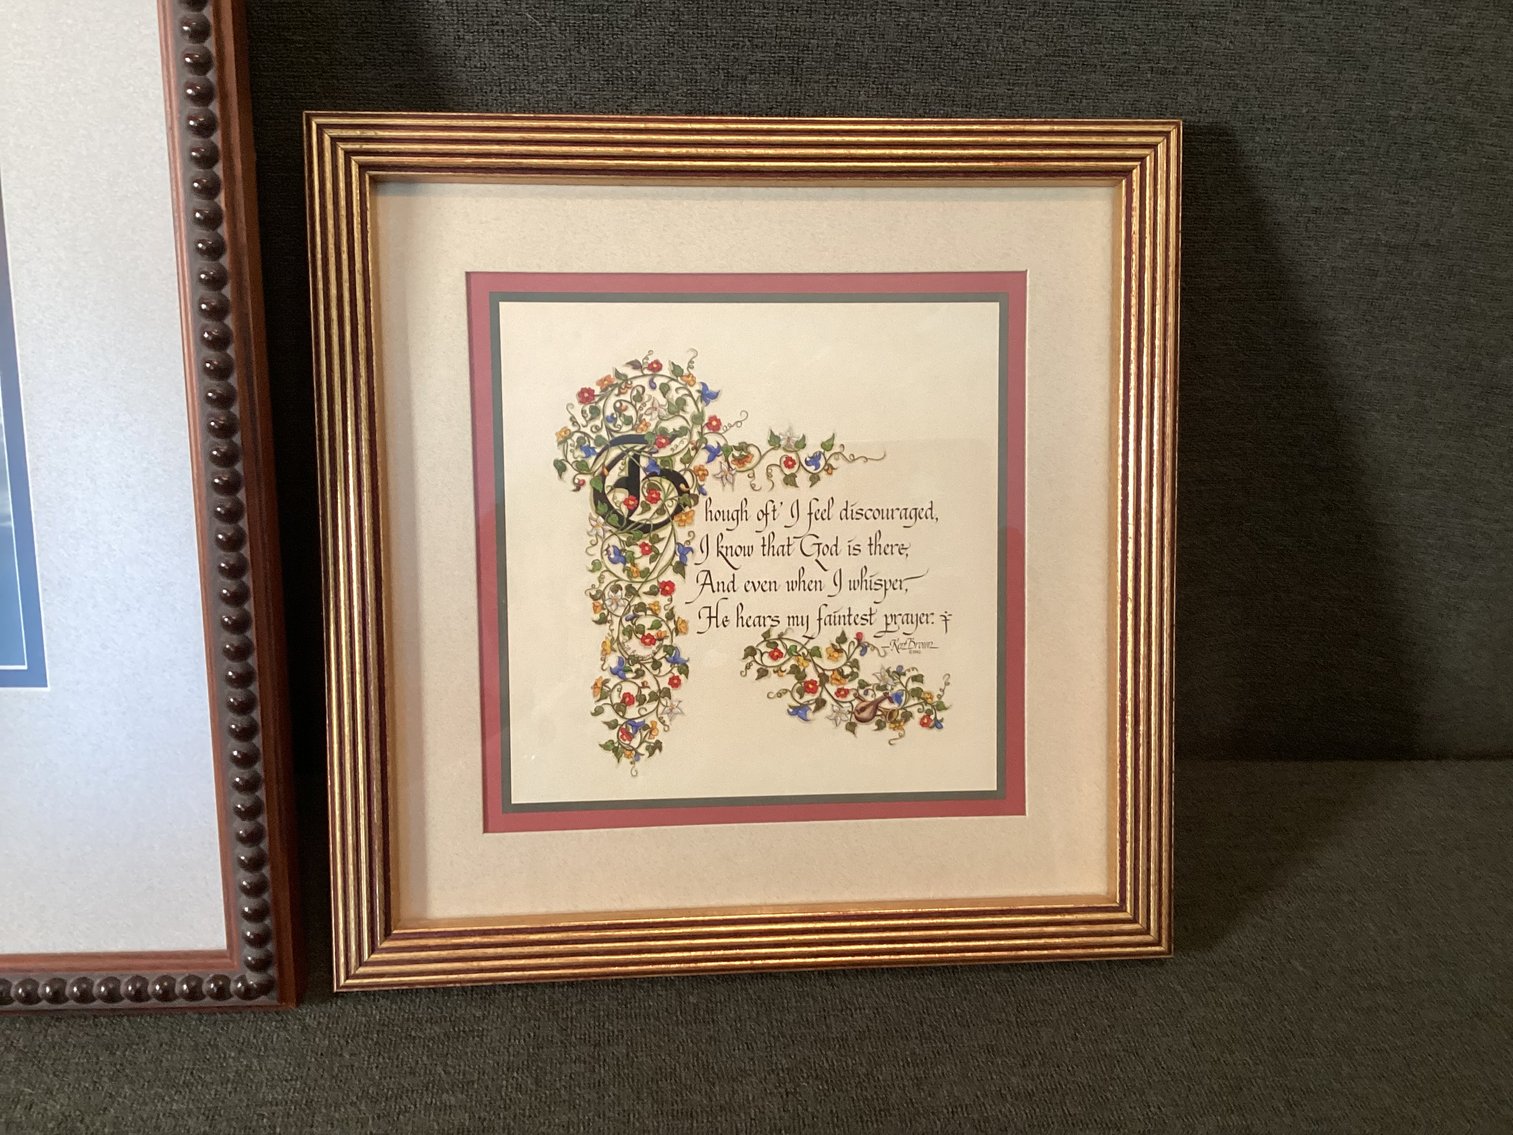 Though oft' I feel discouraged,
I know that God is there,
And even when I whisper,
He hears my faintest prayer.
Ken Brown